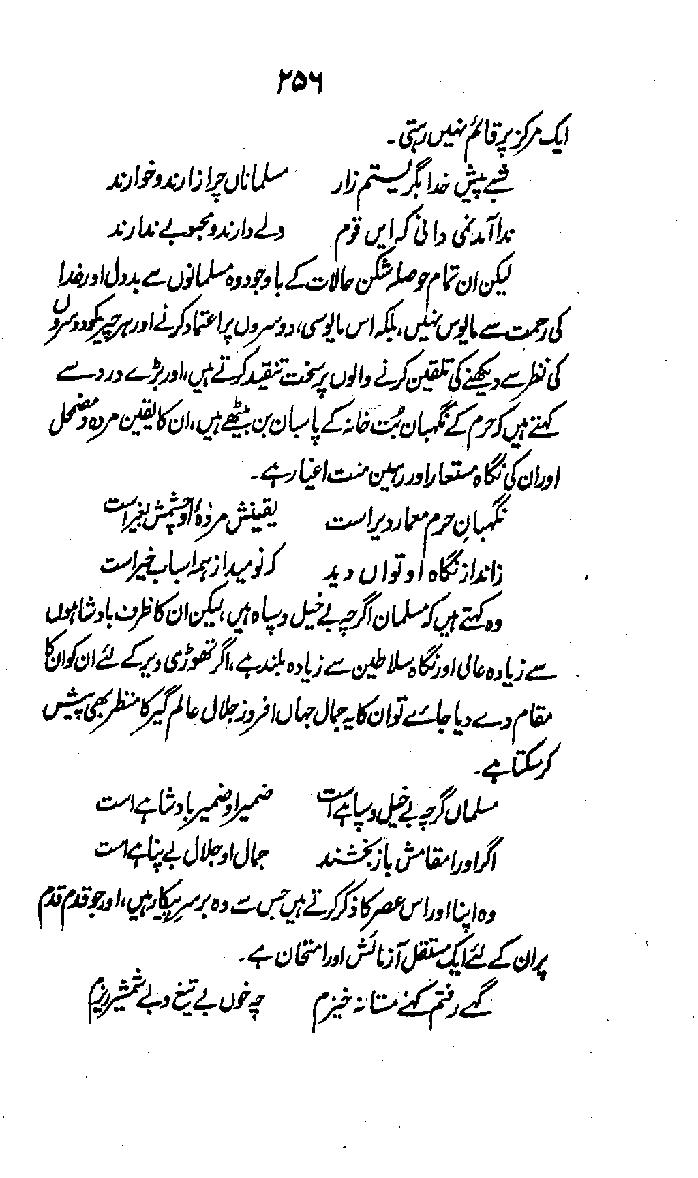 ۲۵۶
ایک مرکز پر قائم نہیں رہتی۔
شبے پیش خدا بگریستم زار مسلماناں چرا زارند و خوارند
ندا آمد نمی دانی کہ ایں قوم دلے دارند و محبوبے ندارند
لیکن ان تمام حوصلہ شکن حالات کے باوجود وہ مسلمانوں سے بد دل اور خدا
کی رحمت سے مایوس نہیں، بلکہ اس مایوسی، دوسروں پر اعتماد کرنے اور ہر چیز کو دوسروں
کی نظر سے دیکھنے کی تلقین کرنے والوں پر سخت تنقید کرتے ہیں، اور بڑے درد سے
کہتے ہیں کہ حرم کے نگہبان بُت خانہ کے پاسبان بن بیٹھے ہیں، ان کا یقین مردہ و مضمحل
اور ان کی نگاہ مستعار اور رہین منت اغیار ہے۔
نگہبان حرم معمار دیر است یقینش مردہ او چشمش بغیر است
زانداز نگاہ او تواں دید کہ نومید از ہمہ اسباب خیر است
وہ کہتے ہیں کہ مسلمان اگرچہ بے خیل و سپاہ ہیں، لیکن ان کا ظرف بادشاہوں
سے زیادہ عالی اور نگاہ سلاطین سے زیادہ بلند ہے، اگر تھوڑی دیر کے لئے ان کو ان کا
مقام دے دیا جائے تو ان کا یہ جمال جہاں افروز جلال عالم گیر کا منظر بھی پیش
کر سکتا ہے۔
مسلماں گرچہ بے خیل و سپاہے است ضمیر او ضمیر بادشاہے است
اگر او را مقامش باز بخشند جمال او جلال بے پناہے است
وہ اپنا اور اس عصر کا ذکر کرتے ہیں جس سے وہ برسرِ پیکار ہیں، اور جو قدم قدم
پر ان کے لئے ایک مستقل آزمائش اور امتحان ہے۔
گہے رفتم گہے مستانہ خیزم چہ خوں بے تیغ و بے شمشیر ریزم